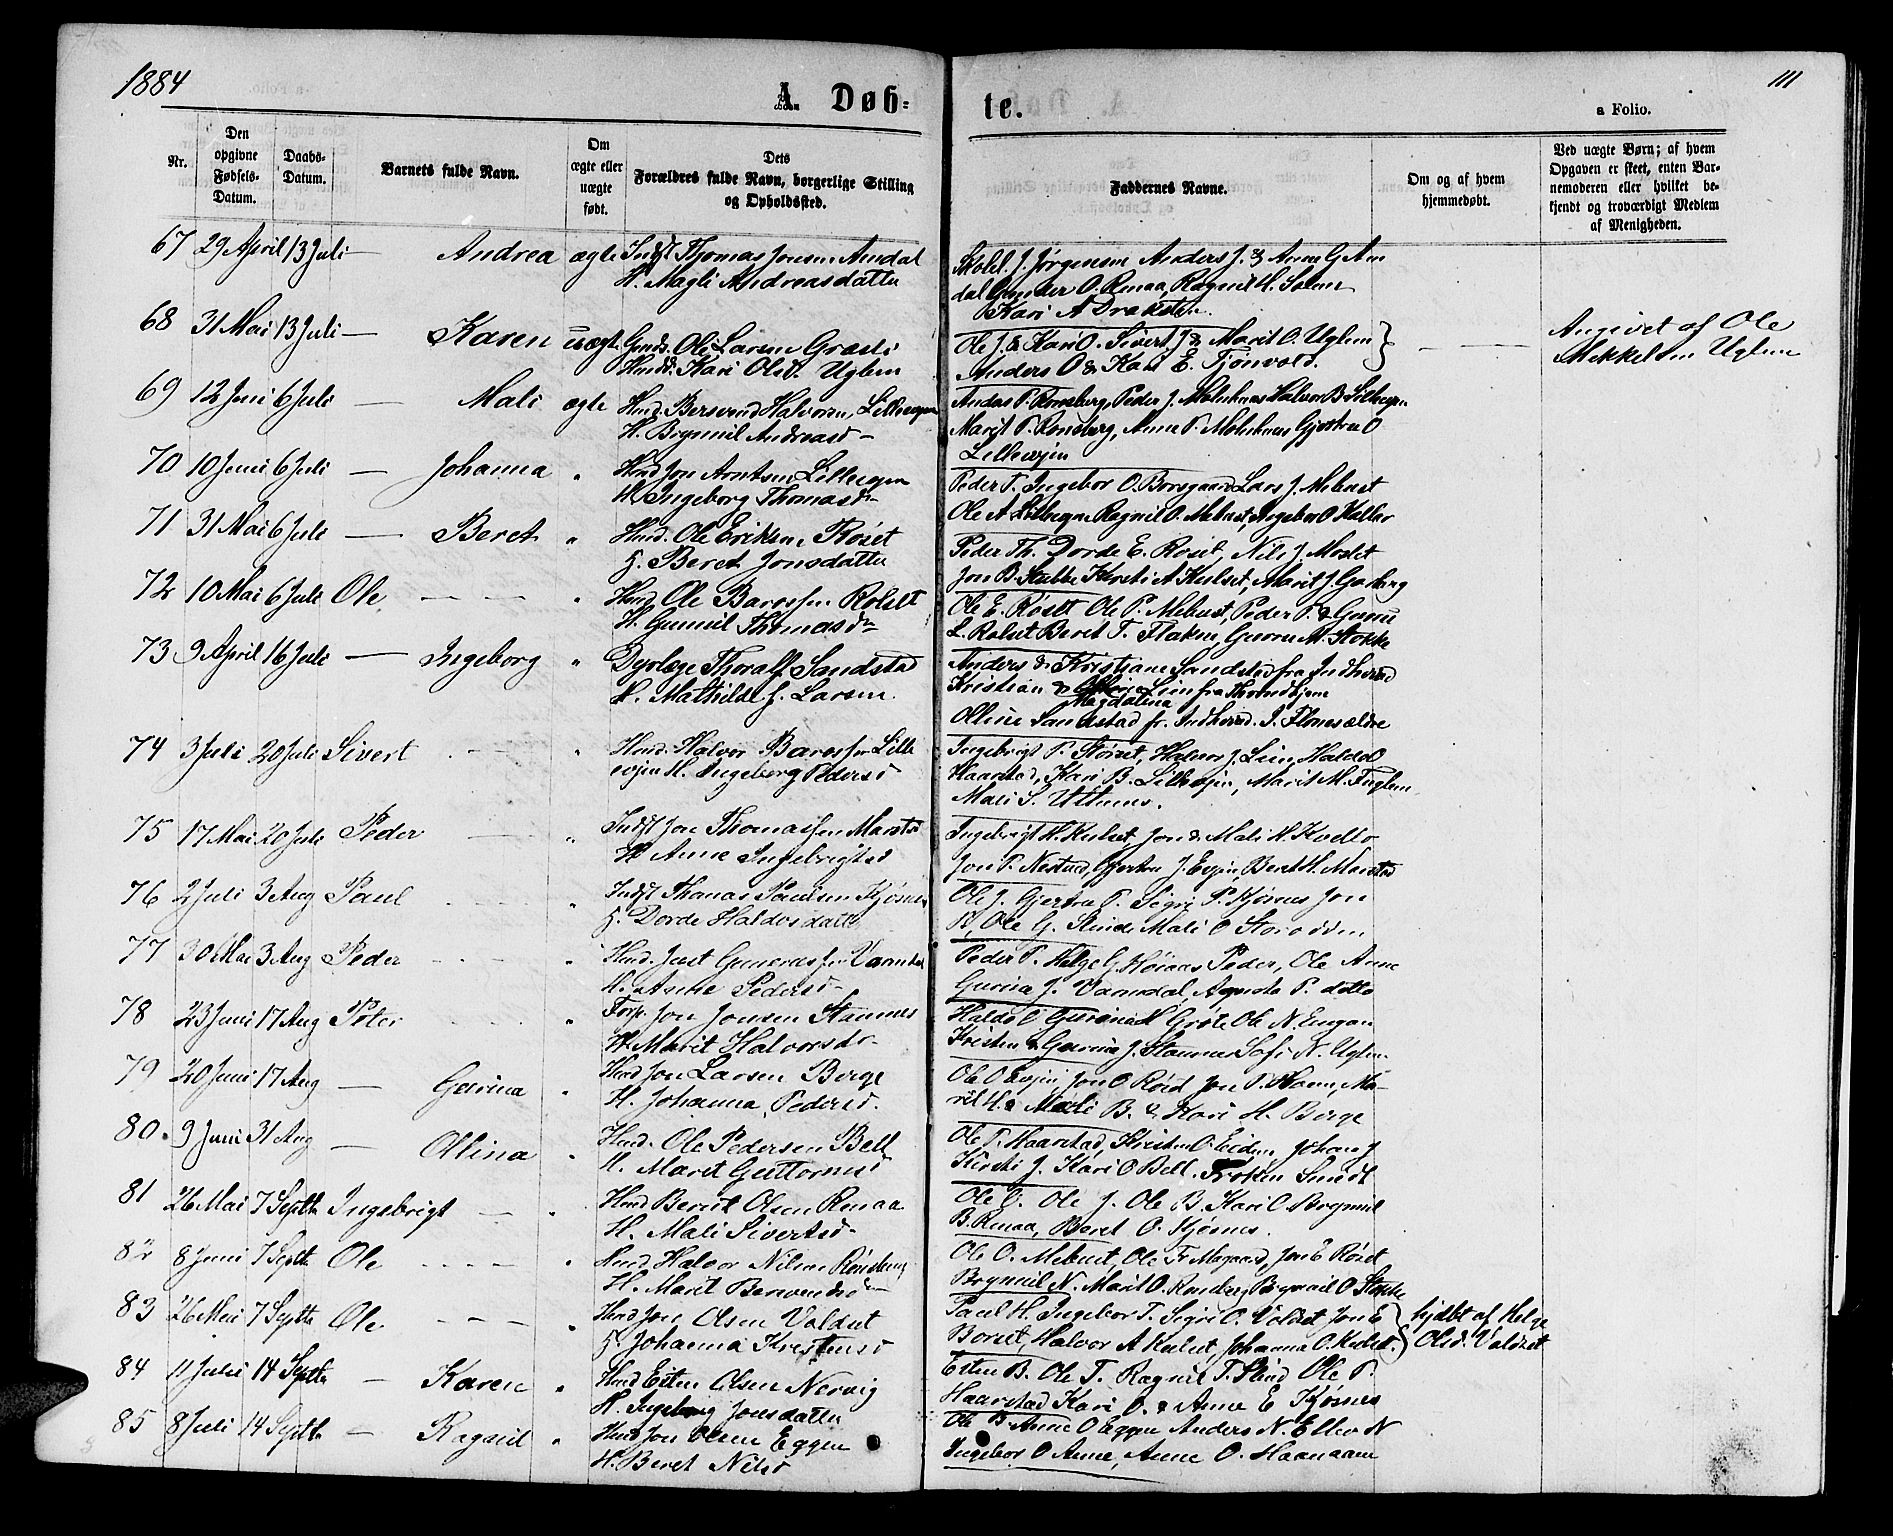 1884
A. Døb-
te.
111
a Folio.
Nr.
Den opgivne Fødsels-Datum.
Daabs-Datum.
Barnets fulde Navn.
Om ægte eller uægte født.
Dets Forældres fulde Navn, borgerlige Stilling og Opholdssted.
Faddernes Navne.
Om og af hvem hjemmedøbt.
Ved uægte Børn; af hvem Opgaven er skeet, enten Barnemoderen eller hvilket bekjendt og troværdigt Medlem af Menigheden.
67 29 April 13 Juli — Andrea ægte Indst Thomas Jonsen Amdal
H. Magli Andreasdatter
J. Jørgensen Anders J. & Anne G Am
dal O. Renaa, Ragnil H.
Kari A Draksten
68 31 Mai 13 Juli — Karen uægt. Ole Larsen
Kari Olsd. Uglem
Ole J. & Kari O. Sivert J & Marit O. Uglem
Anders O & Kari E. Tjønvold.
Angivet af Ole
Mekkelsen Uglem
69 12 Juni 6 Juli — Mali ægte Husm. Bersvend Halvorsen, Lilleevjen
H. Brynnil Andreasd
Peder J. Halvor B. Lilleevjen
Marit P. Rønsberg, Anne P. Gjertru O
Lilleevjen
70 10 Juni 6 Juli — Johanna " Husm Jon Arntsen Lilleevjen
H. Ingeborg Thomasd
Peder T. Ingebor O. Borsgaard Lars J. Mebust
Ole A Lilleevjen Ragnil O. Mebust, Ingebor O
71 31 Mai 6 Juli — Beret " Husm. Ole Eriksen Røset
H. Beret Jonsdatter
Peder Th. Dorde E. Røset, Nils J. Moslet
Jon B. Stubbe Kirsti A Kulset, Marit J.
72 10 Mai 6 Juli Ole — — — " Husm Ole Barossen Rolset
H. Gunnil Thomasd
Ole E. Røset Ole P. Mebust, Peder P. & Guru
L. Rolset Beret T. Flaken, Guru M. Stokke
73 9 April 16 Juli — Ingeborg " Dyrlæge Thoralf Sandstad
H. Mathilde J. Larsen.
Anders & Kristiane Sandstad fra Indherred
Kristian & Lien fra Throndhjem
Magdalena
Olline Sandstad fr. Indherred. J. Flones ældre
74 3 Juli 20 Juli Sivert — — " Husm. Halvor Barossen Lille
evjen H. Ingeborg Pedersd
Ingebrigt P. Størset, Halvor J. Lien, Haldo O
Haarstad, Kari B. Lilleevjen, Marit M. Fuglem
Mali S.
75 17 Mai 20 Juli Peder — " Indst Jon Thomassen Marstad
H Anne Ingebrigtsd
Ingebrigt H. Kulset, Jon & Mali H. Kvello
Jon P. Nestad, Gjertru J. Evjen, Beret H. Marstad
76 2 Juli 3 Aug Paul — — — " Indst Thomas Paulsen Kjøsnes
H. Dorde Haldosdatter
Ole J. Gjertru P. Sigri P. Kjøsnes Jon
P, Ole G. Slind Mali O Storødden
77 30 Mai 3 Aug Peder — — — " Husm. Just Gunnerassen Varmdal
H. Anne Pedersd
Peder P. Helge G. Høiaas Peder, Ole Anne
Gurina J. Varmdal, P. detto
78 23 Juni 17 Aug Peter — — — " Forp. Jon Jonsen Stamnes
H. Marit Halvorsd
Haldo O Gurina H Grøte Ole N. Engan
Kristen & Gurina J. Stamnes Sofi N. Uglem
79 20 Juni 17 Aug — Gurina " Husm Jon Larsen Berge
H. Johanna Pedersd.
Ole O Evjen, Jon O Røsd Jon P. Ma-
rit H. & Mali B. & Kari H. Berge
80. 9 Juni 31 Aug — Ollina " Husm. Ole Pedersen Bell
H. Marit Guttormsd
Ole P. Haarstad, Kristen O. Eidem Johan J
Kirsti J. Kari O Bell. Frøken Smidt
81 26 Mai 7 Septb Ingebrigt — " Husm Berut Olsen Renaa
H. Mali Sivertsd
Ole O. Ole J. Ole B. Kari O Brynnil
B. Renaa, Beret O. Kjøsnes.
82 8 Juni 7 Septb Ole — — — " Husm Halvor Nilsen Rønsberg
H. Marit Bersvendsd
Ole O. Mebust, Ole Fr Mogaard, Jon E Røset
Brynnil N. Marit O. Rønsberg Brynnil O Stokke
83 26 Mai 7 Septb Ole — — — " Husm Jon Olsen Valdset
H. Johanna Kristensd
Paul H. Ingebor T. Sigri O. Valdset, Jon E
Borset, Halvor A Kulset, Johanna O. Kulset.
hjdbt af Helge
Olsd. Valdset
84 11 Juli 14 Septb — Karen " Husm Esten Olsen Nervig
H. Ingeborg Jonsdatter
Esten B. Ole T. Ragnil T. Slind Ole P.
Haarstad Kari O. & Anne E Kjøsnes
85 8 Juli 14 Septb — Ragnil " Husm Jon Olsen Eggen
H. Beret Nilsd
Ole B. Anne O Eggen Anders N. Ellev N
Ingebor O Anne, Anne O. Haanaam